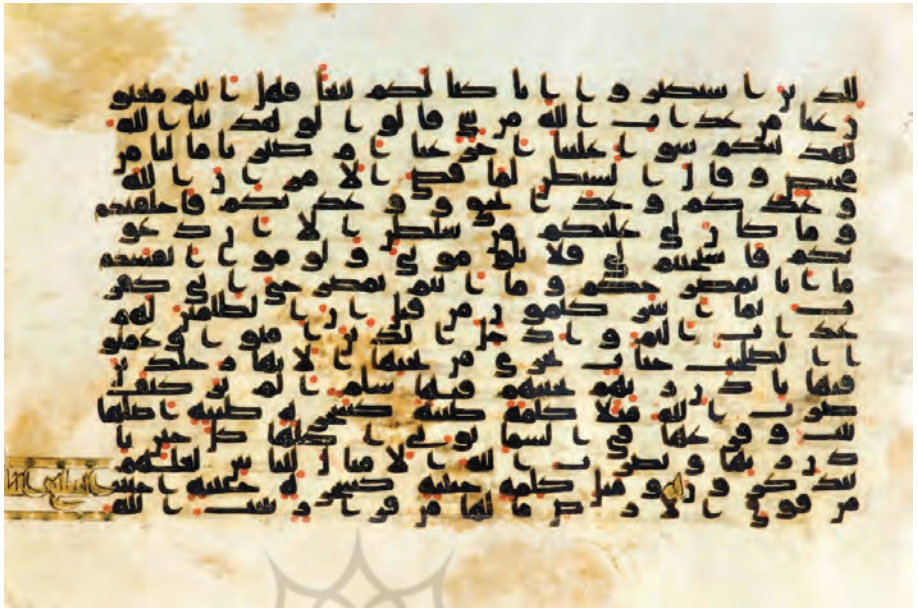 للذين استكبروا انا كنا لكم تبعا فهل انتم مغنو
ن عنا من عذاب الله من شي قالوا لو هدينا الله
لهدينكم سوا علينا اجزعنا ام صبرنا ما لنا من
محيص وقال الشيطن لما قضي الامر ان الله
وعدكم وعد الحق ووعدتكم فاخلفتكم
وما كان لي عليكم من سلطن الا ان دعو
تكم فاستجبتم لي فلا تلوموني ولوموا انفسكم
ما انا بمصرخكم وما انتم بمصرخي اني كفر
ت بما اشركتمون من قبل ان الظلمين لهم
عذاب اليم وادخل الذين امنوا وعملو
ا الصلحت جنت تجري من تحتها الانهر خلدين
فيها باذن ربهم تحيتهم فيها سلم الم تر كيف
ضرب الله مثلا كلمة طيبة كشجرة طيبة اصلها
ثبت وفرعها في السما توتي اكلها كل حين با
ذن ربها ويضرب الله الامثال للناس لعلهم
يتذكرون ومثل كلمة خبيثة كشجرة خبيثة اجتثت
من فوق الارض ما لها من قرار يثبت الله